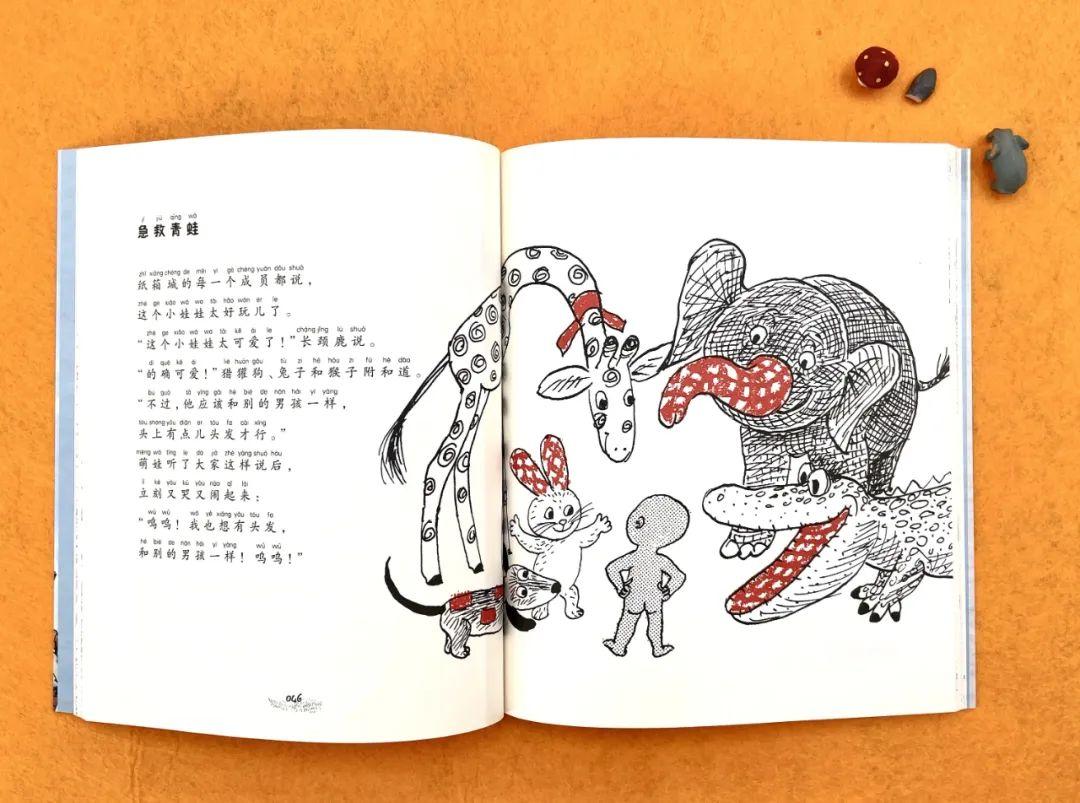 jí jiù qīng wā
急救青蛙
zhǐ xiāng chéng de měi yí gè chéng yuán dōu shuō
纸箱城的每一个成员都说，
zhè ge xiǎo wá wa tài hǎo wán ér le
这个小娃娃太好玩儿了。
zhè ge xiǎo wá wa tài kě ài le cháng jǐng lù shuō
“这个小娃娃太可爱了！”长颈鹿说。
dí què kě ài liè huān gǒu tù zi hé hóu zi fù hè dào
“的确可爱！”猎獾狗、兔子和猴子附和道。
bú guò tā yīng gāi hé bié de nán hái yí yàng
“不过，他应该和别的男孩一样，
tóu shang yǒu diǎn ér tóu fa cái xíng
头上有点儿头发才行。”
méng wá tīng le dà jiā zhè yàng shuō hòu
萌娃听了大家这样说后，
lì kè yòu kū yòu nào qǐ lái
立刻又哭又闹起来：
wū wū wǒ yě xiǎng yǒu tóu fa
“呜呜！我也想有头发，
hé bié de nán hái yí yàng wū wū
和别的男孩一样！呜呜！”
046